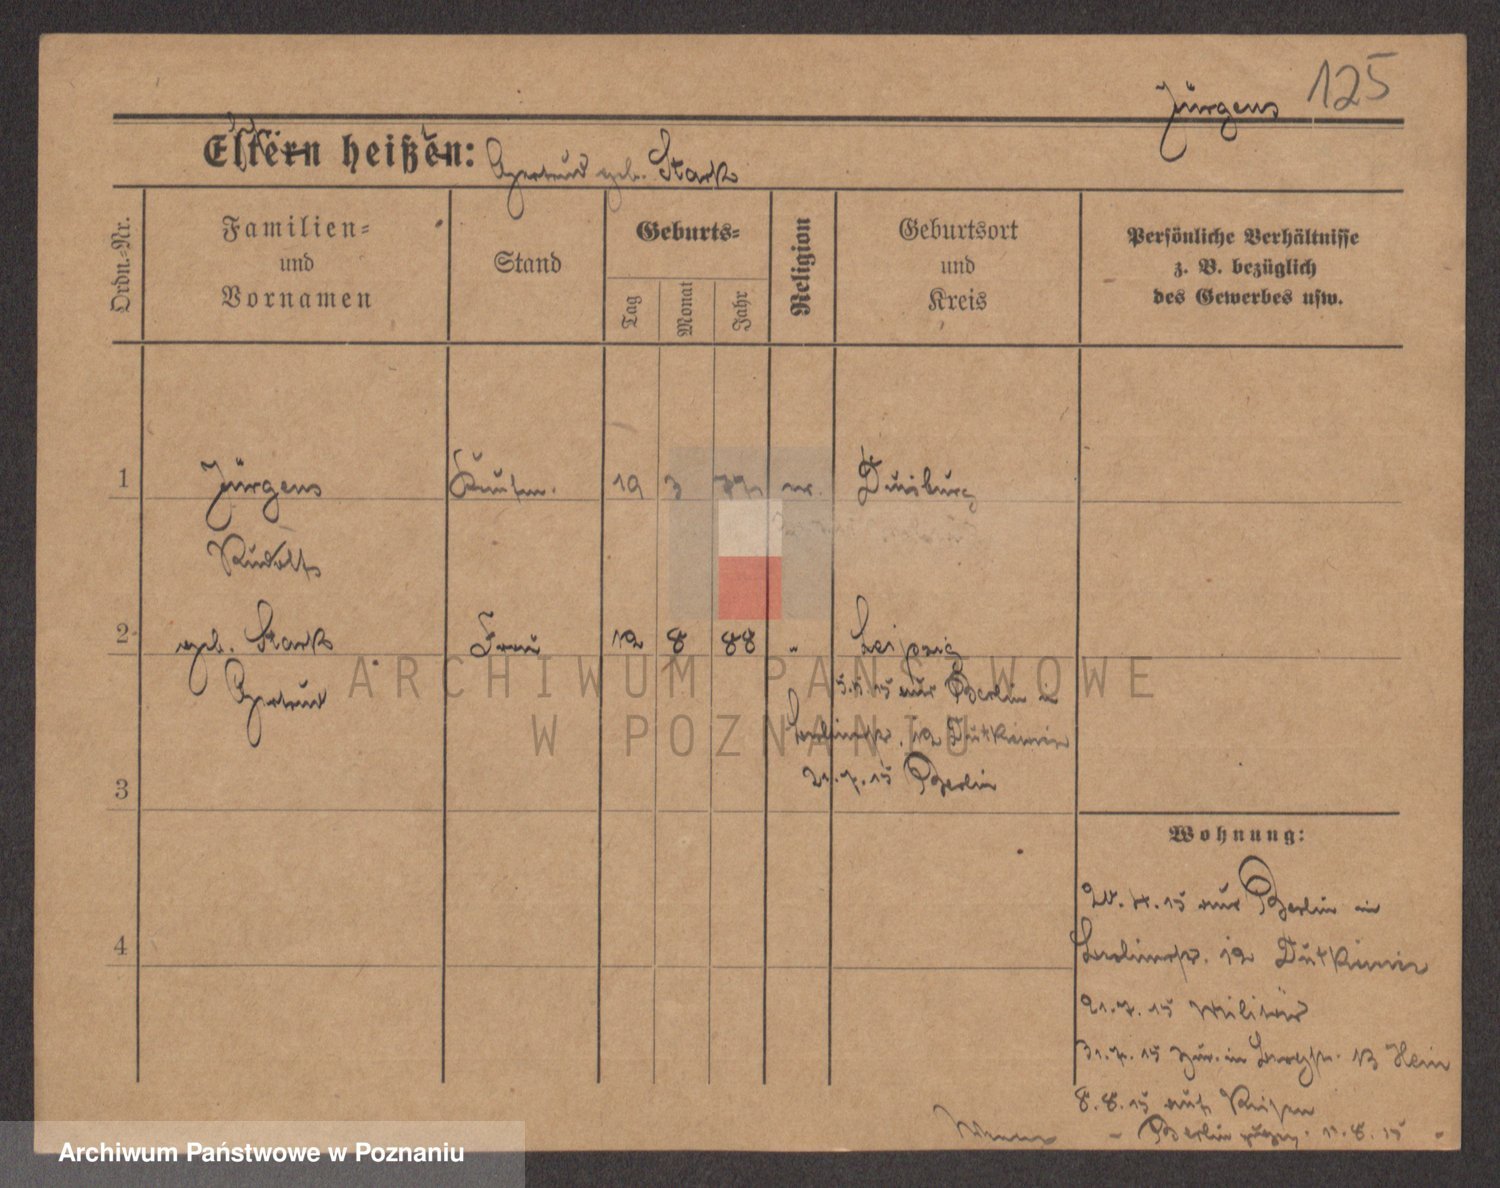 125
Jürgens
Eltern heißen: Gertrud geb. Stark
Ordn.-Nr.
Familien-
und
Vornamen
Stand
Geburts-
Tag
Monat
Jahr
Religion
Geburtsort
und
Kreis
Persönliche Verhältnisse
z. B. bezüglich
des Gewerbes usw.
1 Jürgens Kaufm. 19 3 Duisburg
Rudolf
2 geb. Stark Frau 12 8 88 " Leipzig
Gertrud
15 aus Berlin in
12
21.7.15 Berlin
3
4
Wohnung:
20.4.15 aus Berlin in
12
21.7.15 Militär
31.7.15 zur. in 13
8.8.15 auf Reisen
Berlin 11.8.15
ARCHIWUM PAŃSTWOWE
W POZNANIU
Archiwum Państwowe w Poznaniu